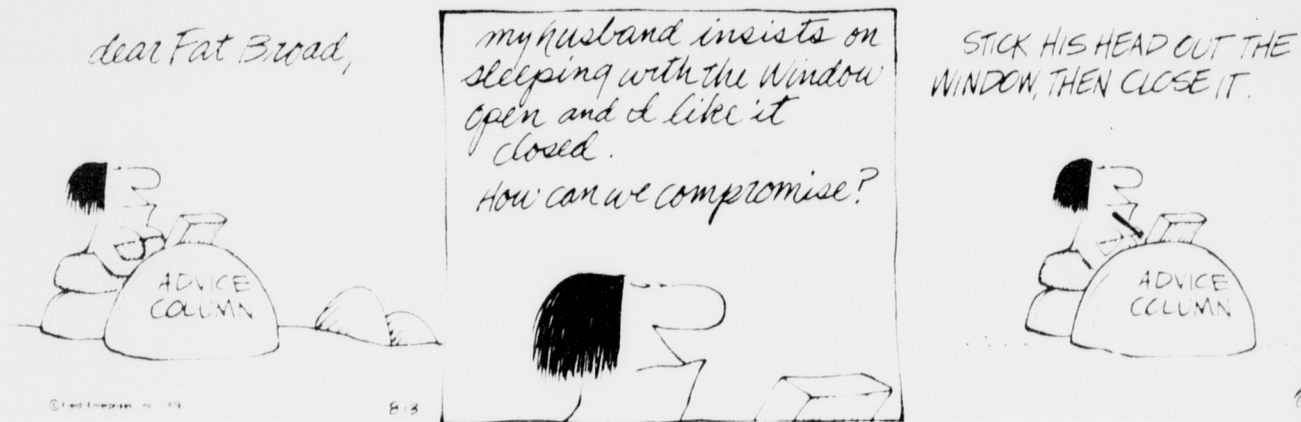 dear Fat Broad,
ADVICE
COLUMN
© Field Enterprises, Inc.
8-13
my husband insists on
sleeping with the window
open and I like it
closed.
How can we compromise?
STICK HIS HEAD OUT THE
WINDOW, THEN CLOSE IT.
ADVICE
COLUMN